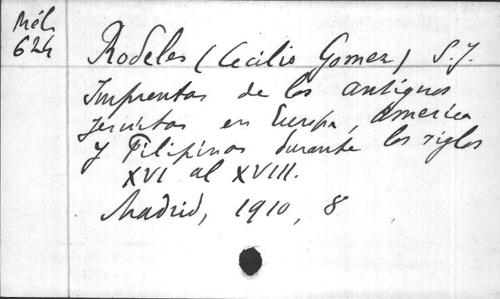 Mél.
624
Rodeles (Cecilio Gomez) S.J.
Imprentas de los antiguos
jesuitas en Europa, America
y Filipinas durante los siglos
XVI al XVIII.
Madrid, 1910, 8